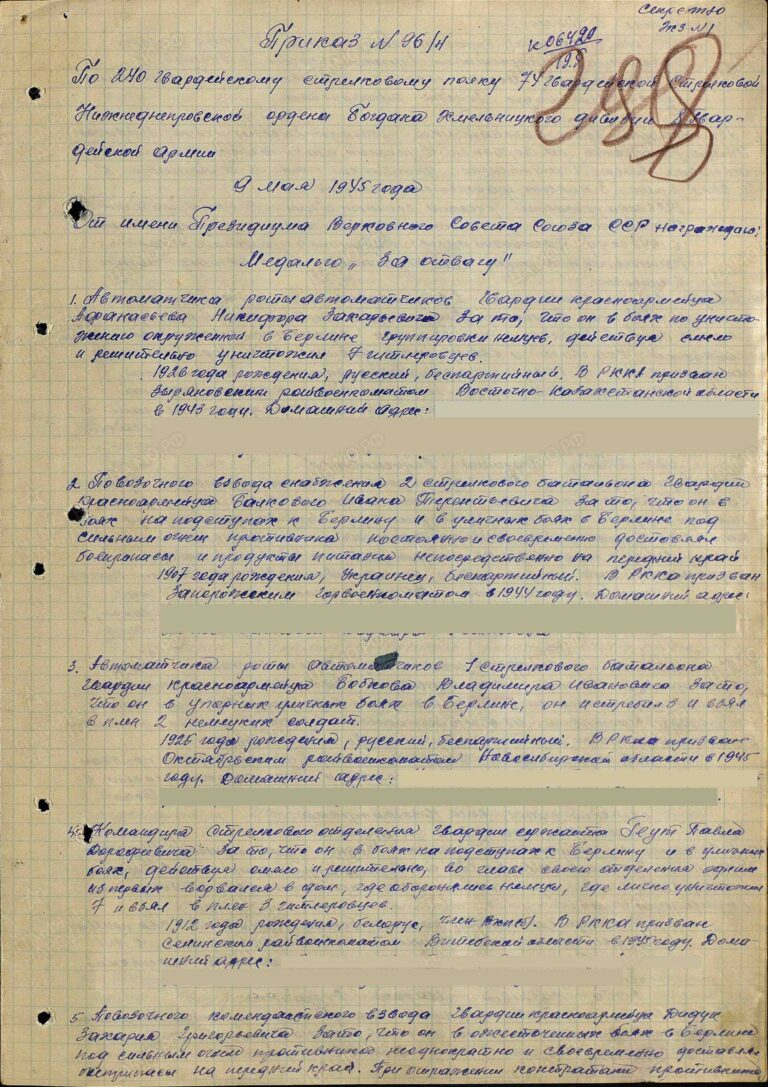 Секретно
Экз №1
Приказ № 96/н
к 06490
19.5
По 240 гвардейскому стрелковому полку 74 Гвардейской Стрелковой
Нижнеднепровской ордена Богдана Хмельницкого дивизии 8 Гвар-
дейской армии
9 мая 1945 года
От имени Президиума Верховного Совета Союза ССР награждаю:
Медалью "За отвагу"
1. Автоматчика роты автоматчиков Гвардии красноармейца
Афанасьева Никифора Захарьевича За то, что он в боях по уничто-
жению окруженной в Берлине группировки немцев, действуя смело
и решительно уничтожил 7 гитлеровцев.
1926 года рождения, русский, беспартийный. В РККА призван
Зыряновским райвоенкоматом Восточно-Казахстанской области
в 1943 году. Домашний адрес:
2. Повозочного взвода снабжения 2 стрелкового батальона Гвардии
Красноармейца Ивана Терентьевича За то, что он в
боях на подступах к Берлину и в уличных боях в Берлине под
сильным огнем противника постоянно и своевременно доставлял
боеприпасы и продукты питания непосредственно на передний край
1907 года рождения, Украинец, беспартийный. В РККА призван
Запорожским горвоенкоматом в 1944 году. Домашний адрес:
3. Автоматчика роты автоматчиков 1 стрелкового батальона
Гвардии красноармейца Бобкова Владимира Ивановича За то,
что он в упорных уличных боях в Берлине, он истребил 3 и взял
в плен 2 немецких солдат.
1926 года рождения, русский, беспартийный. В РККА призван
Октябрьским райвоенкоматом Новосибирской области в 1945
году. Домашний адрес:
4. Командира Стрелкового отделения гвардии сержанта Геут Павла
Дорофеевича За то, что он в боях на подступах к Берлину и в уличных
боях, действуя смело и решительно, во главе своего отделения одним
из первых ворвался в дом, где оборонялись немцы, где лично уничтожил
7 и взял в плен 3 гитлеровцев.
1912 года рождения, белорус, член ВКП(б). В РККА призван
Сенинским райвоенкоматом Витебской области в году. Дома-
шний адрес:
5. Повозочного комендантского взвода Гвардии красноармейца Дидук
Захария Григорьевича За то, что он в ожесточенных боях в Берлине
под сильным огнем противника неоднократно и своевременно доставлял
на передний край. При отражении контратаки противника